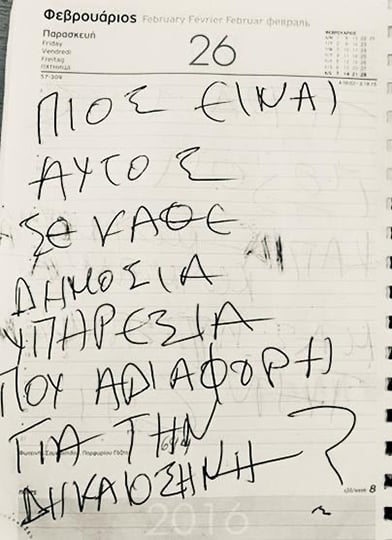 Φεβρουάριος February Février Februar февраль
Παρασκευή
Friday
Vendredi
Freitag
ПЯТНИЦА
57-309
26
ΦΕΒΡΟΥΑΡΙΟΣ
ΠΙΟΣ ΕΙΝΑΙ
ΑΥΤΟΣ
ΣΕ ΚΑΘΕ
ΔΗΜΟΣΙΑ
ΥΠΗΡΕΣΙΑ
ΠΟΥ ΑΔΙΑΦΟΡΗ
ΓΙΑ ΤΗΝ
ΔΗΚΑΙΟΣΗΝΗ ?
εβδ/week 8
2016